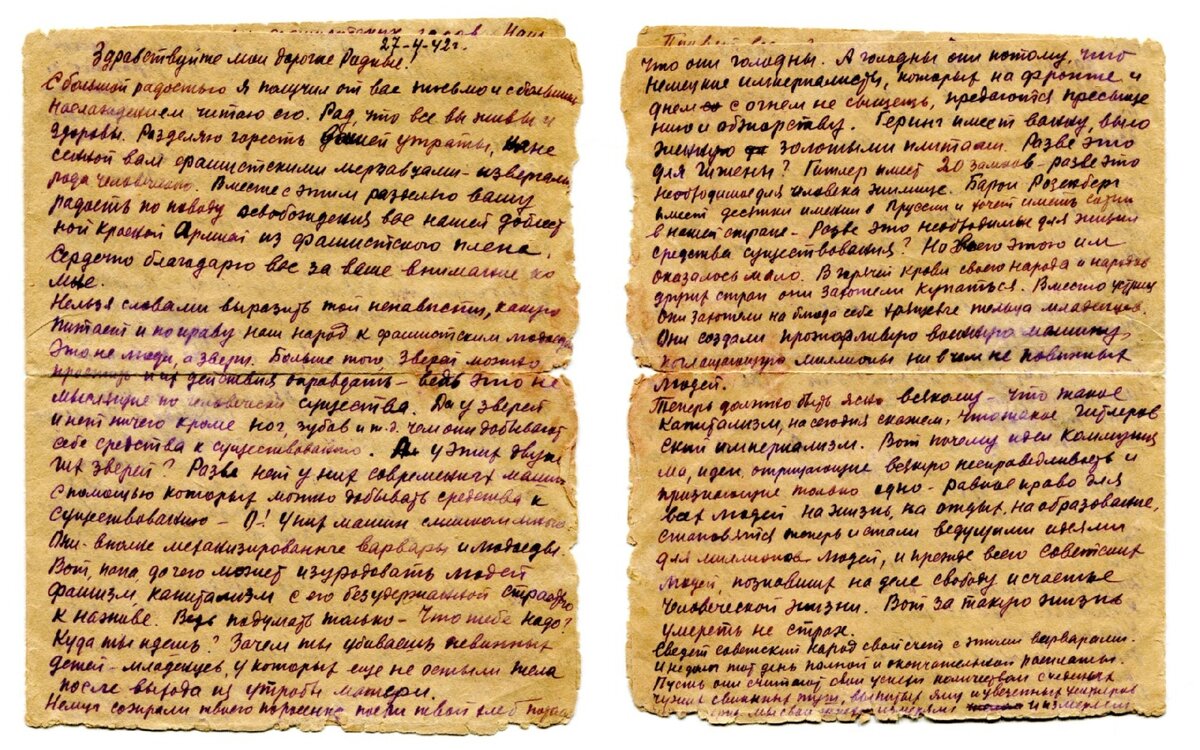 27-4-42г.
Здравствуйте мои дорогие Родные!
С большой радостью Я получил от вас письмо и с большим
наслаждением читаю его. Рад, что все вы живы и
здоровы. Разделяю горесть вашей утраты, нане
сенной вам фашистскими мерзавцами - извергами
рода человеческого. Вместе с этим разделяю вашу
радость по поводу освобождения вас нашей доблест
ной Красной Армией из фашистского плена.
Сердечно благодарю вас за ваше внимание ко
мне.
Нельзя словами выразить той ненависти, какую
питает и по праву наш народ к фашистским людоедам
Это не люди, а звери. Больше того, Зверей можно
простить и их действия оправдать - ведь это не
мыслящие по человечески существа. Да у зверей
и нет ничего кроме ног, зубов и т.д. чем они добывают
себе средства к существованию. А у этих двуно
гих зверей? Разве нет у них современных машин
с помощью которых можно добывать средства к
существованию - О! У них машин слишком много
Они - вполне механизированные варвары и людоеды.
Вот, папа, до чего может изуродовать людей
фашизм, капитализм с его безудержанной страстью
к наживе. Ведь подумать только - Что тебе надо?
Куда ты идешь? Зачем ты убиваешь невинных
детей - младенцев, у которых еще не остыли тела
после выхода из утробы матери.
Немцы сожрали твоего поросенка, поели твой хлеб
Что они голодны. А голодны они потому, что
немецкие империалисты, которых на фронте и
днем с огнем не сыщешь, предаются пресыще
нию и обжорству. Геринг имеет ванну, выло
женную золотыми плитами. Разве это
для Гигиены? Гитлер имеет 20 замков - разве это
необходимое для человека жилище. Барон Розенберг
имеет десятки имений в Пруссии и хочет иметь сотни
в нашей стране - Разве это необходимые для жизни
средства существования? Но всего этого им
оказалось мало. В горячей крови своего народа и народов
других стран они захотели купаться. Вместо устриц
Они захотели на блюда себе хрупкие тельца младенцев.
Они создали прожорливую военную машину,
поглощающую миллионы ни в чем не повинных
людей.
Теперь должно быть ясно всякому - что такое
Капитализм, на сегодня скажем, что такое гитлеров
ский империализм. Вот почему идеи Коммуниз
ма, идеи отрицающие всякую несправедливость и
признающие только одно - равное право для
всех людей на жизнь, на отдых, на образование,
становятся теперь и стали ведущими идеями
для миллионов людей, и прежде всего советских
людей, познавших на деле свободу и счастье
Человеческой жизни. Вот за такую жизнь
умереть не страх.
Сведет советский народ свой счет с этими варварами.
И недалек тот день полной и окончательной расплаты.
Пусть они считают свои успехи количеством съеденных
чужих свинных туш, выпитых яиц и увезенных
мы свои измеряем и измеряем